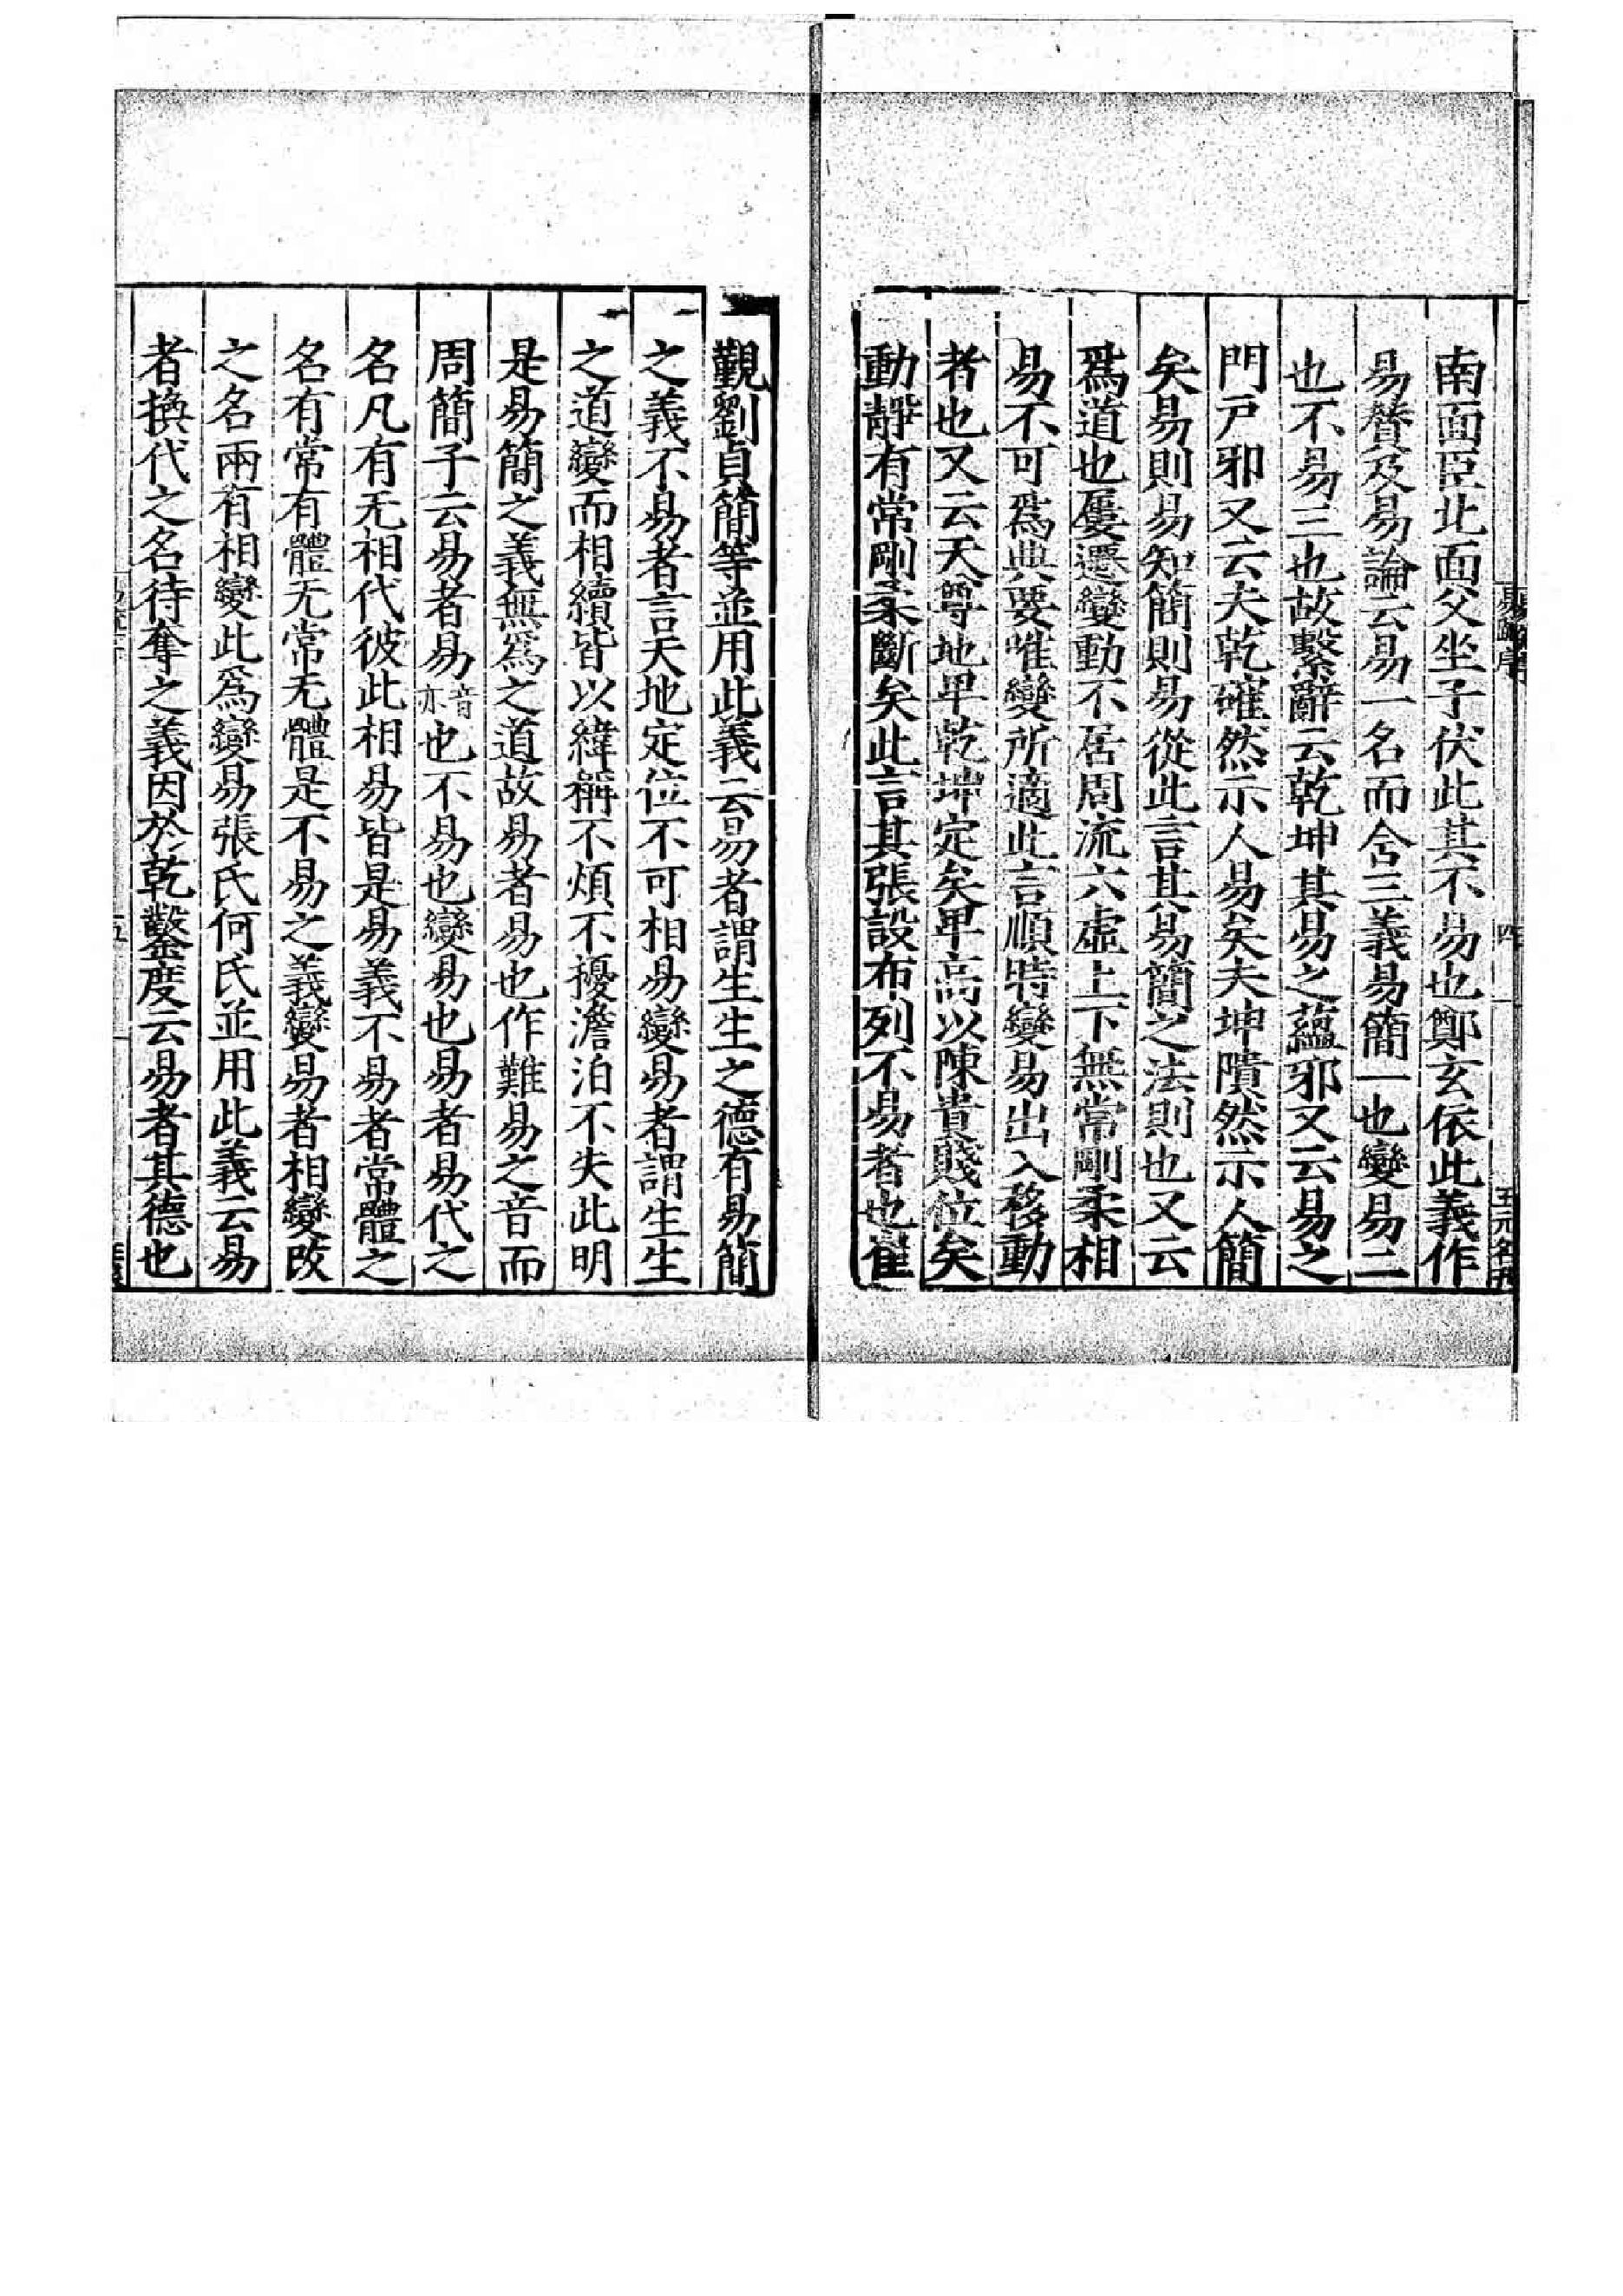 南面臣北面父坐子伏此其不易也鄭玄依此義作
易贊及易論云易一名而含三義易簡一也變易二
也不易三也故繫辭云乾坤其易之蘊邪又云易之
門戸邪又云夫乾確然示人易矣夫坤隤然示人簡
矣易則易知簡則易從此言其易簡之法則也又云
爲道也屢遷變動不居周流六虛上下無常剛柔相
易不可爲典要唯變所適此言順時變易出入移動
者也又云天尊地卑乾坤定矣卑高以陳貴賤位矣
動靜有常剛柔斷矣此言其張設布列不易者也崔
覲劉貞簡等並用此義云易者謂生生之德有易簡
之義不易者言天地定位不可相易變易者謂生生
之道變而相續皆以緯稱不煩不擾澹泊不失此明
是易簡之義無爲之道故易者易也作難易之音而
周簡子云易者易音亦也不易也變易也易者易代之
名凡有无相代彼此相易皆是易義不易者常體之
名有常有體无常无體是不易之義變易者相變改
之名兩有相變此爲變易張氏何氏並用此義云易
者換代之名待奪之義因於乾鑿度云易者其德也
易疏序
四
五